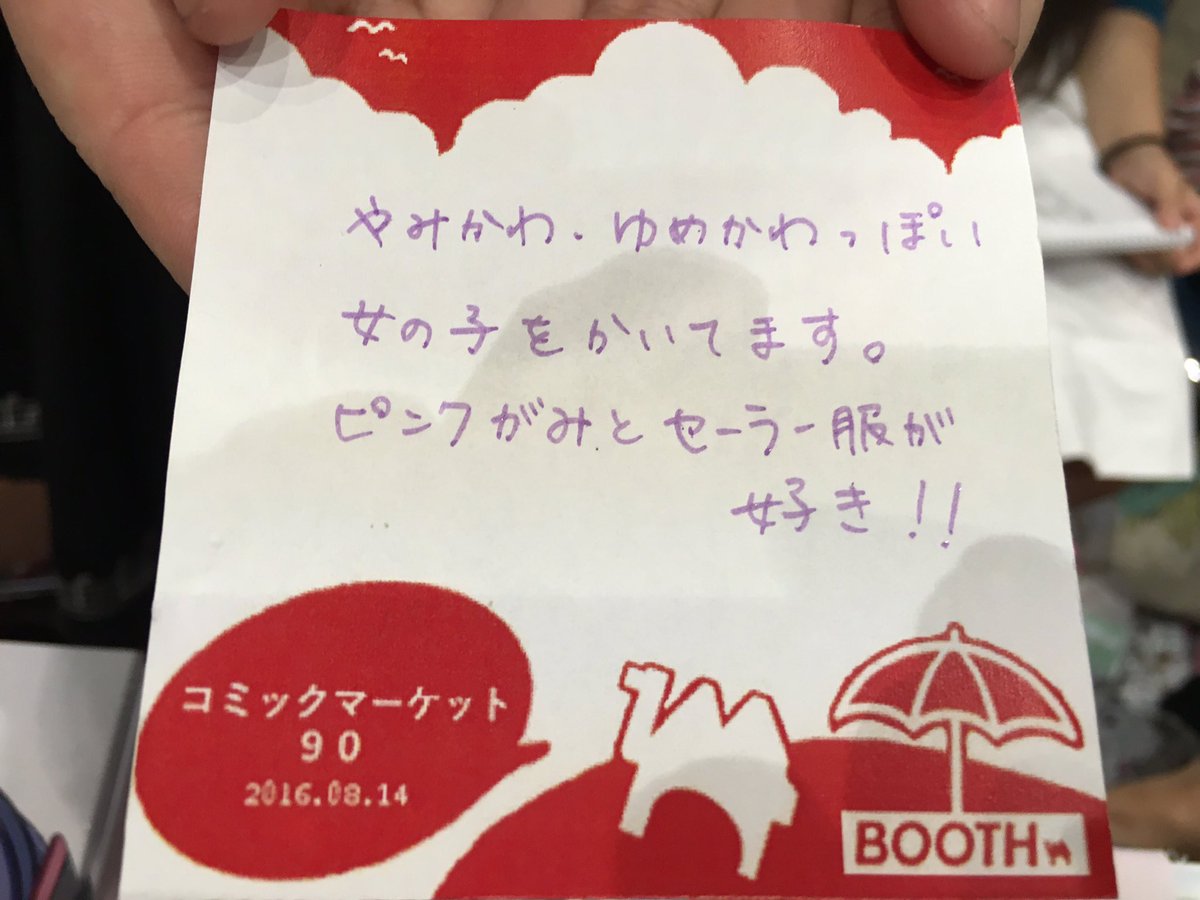 やみかわ.ゆめかわっぽい
女の子をかいてます。
ピンクがみとセーラー服が
好き!!
コミックマーケット
90
2016.08.14
BOOTH